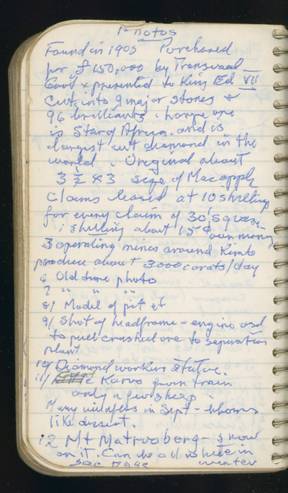 Photos
Found in 1905 Purchased
for £150,000 by Transvaal
Govt & presented to King Ed VII
Cut into 9 major stones &
96 brilliants. Large one
is Star of Africa and is
largest cut diamond in the
world. Original about
3 ½ x 3 size of Mac apple
Claims leased at 10 shillings
for every claim of 30 square
1 shilling about 15¢ our money
3 operating mines around Kimb
produce about 3000 carats/day
6 Old time photo
7 " " "
8/ Model of pit at
9/ Shot of headframe - engine used
to pull crushed ore to separation
plant.
10/ Diamond workers statue.
11/ Karoo from train
only a few sheep
Many wildflrs in Sept - when
like desert.
12 Mt Matroosberg - snow
on it. Can be
winter